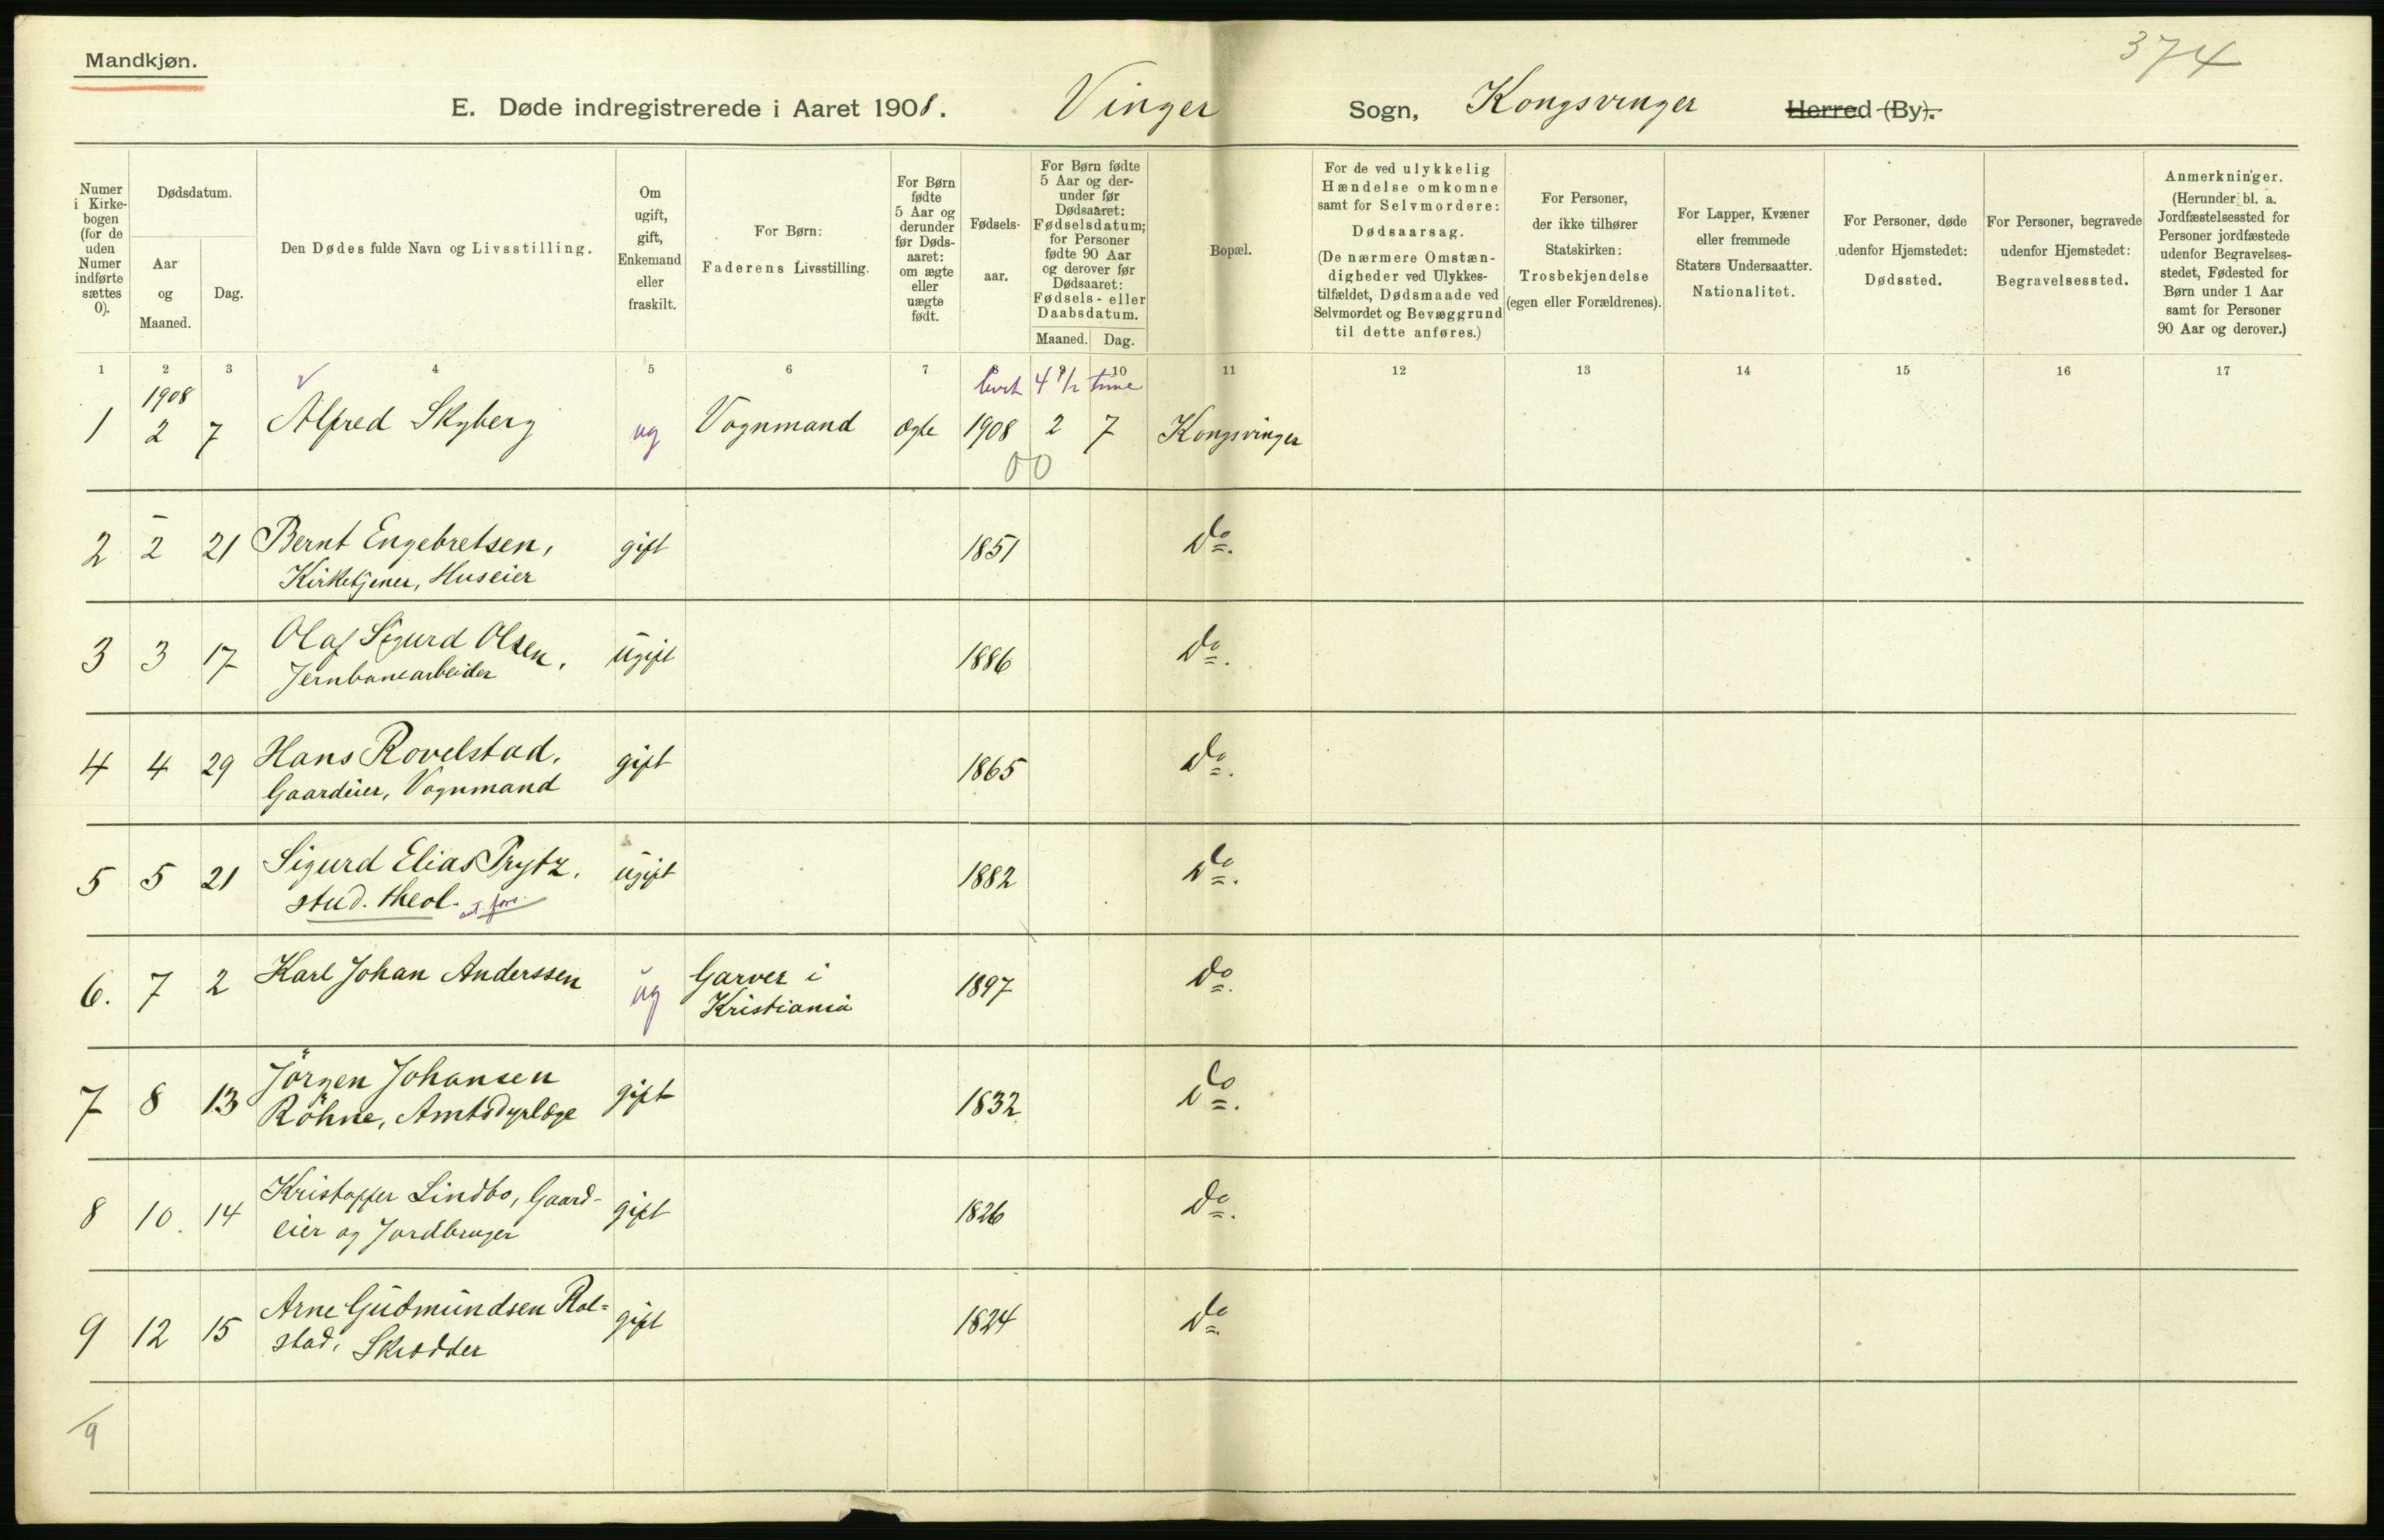 Mandkjøn.
374
E. Døde indregistrerede i Aaret 1908. Vinger Sogn, Kongsvinger Herred (By).
Numer i Kirke-bogen (for de uden Numer indførte sættes 0).
Dødsdatum.
Aar og Maaned.
Dag.
Den Dødes fulde Navn og Livsstilling.
Om ugift, gift, Enkemand eller fraskilt.
For Børn:
Faderens Livsstilling.
For Børn fødte 5 Aar og derunder før Døds-aaret: om ægte eller uægte født.
Fødsels-aar.
For Børn fødte 5 Aar og der-under før Dødsaaret: Fødselsdatum; for Personer fødte 90 Aar og derover før Dødsaaret: Fødsels- eller Daabsdatum.
Maaned. Dag.
Bopæl.
For de ved ulykkelig Hændelse omkomne samt for Selvmordere:
Dødsaarsag.
(De nærmere Omstæn-digheder ved Ulykkes-tilfældet, Dødsmaade ved Selvmordet og Bevæggrund til dette anføres.)
For Personer, der ikke tilhører Statskirken:
Trosbekjendelse
(egen eller Forældrenes).
For Lapper, Kvæner eller fremmede Staters Undersaatter.
Nationalitet.
For Personer, døde udenfor Hjemstedet:
Dødssted.
For Personer, begravede udenfor Hjemstedet:
Begravelsessted.
Anmerkninger.
(Herunder bl. a. Jordfæstelsessted for Personer jordfæstede udenfor Begravelses-stedet, Fødested for Børn under 1 Aar samt for Personer 90 Aar og derover.)
1 2 3 4 5 6 7 8 9 10 11 12 13 14 15 16 17
1908 levet 4 1/2 time
1 2 7 Alfred Skyberg ug Vognmand ægte 1908 2 7 Kongsvinger
00
2 2 21 Bernt Engebretsen, gift 1851 Do.
Kirketjener, Huseier
3 3 17 Olaf Sigurd Olsen, ugift 1886 Do.
Jernbanearbeider
4 4 29 Hans Rovelstad, gift 1865 Do.
Gaardeier, Vognmand
5 5 21 Sigurd Elias Prytz, ugift 1882 Do.
stud. theol.
6. 7 2 Karl Johan Anderssen ug Garver i 1897 Do.
Kristiania
7 8 13 Jörgen Johansen gift 1832 Do.
Röhne, Amtsdyrlæge
8 10. 14 Kristoffer Lindbo, Gaard- gift 1826 Do.
eier og Jordbruger
9 12 15 Arne Gudmundsen Rol= gift 1824 Do.
stad, Skrædder
9